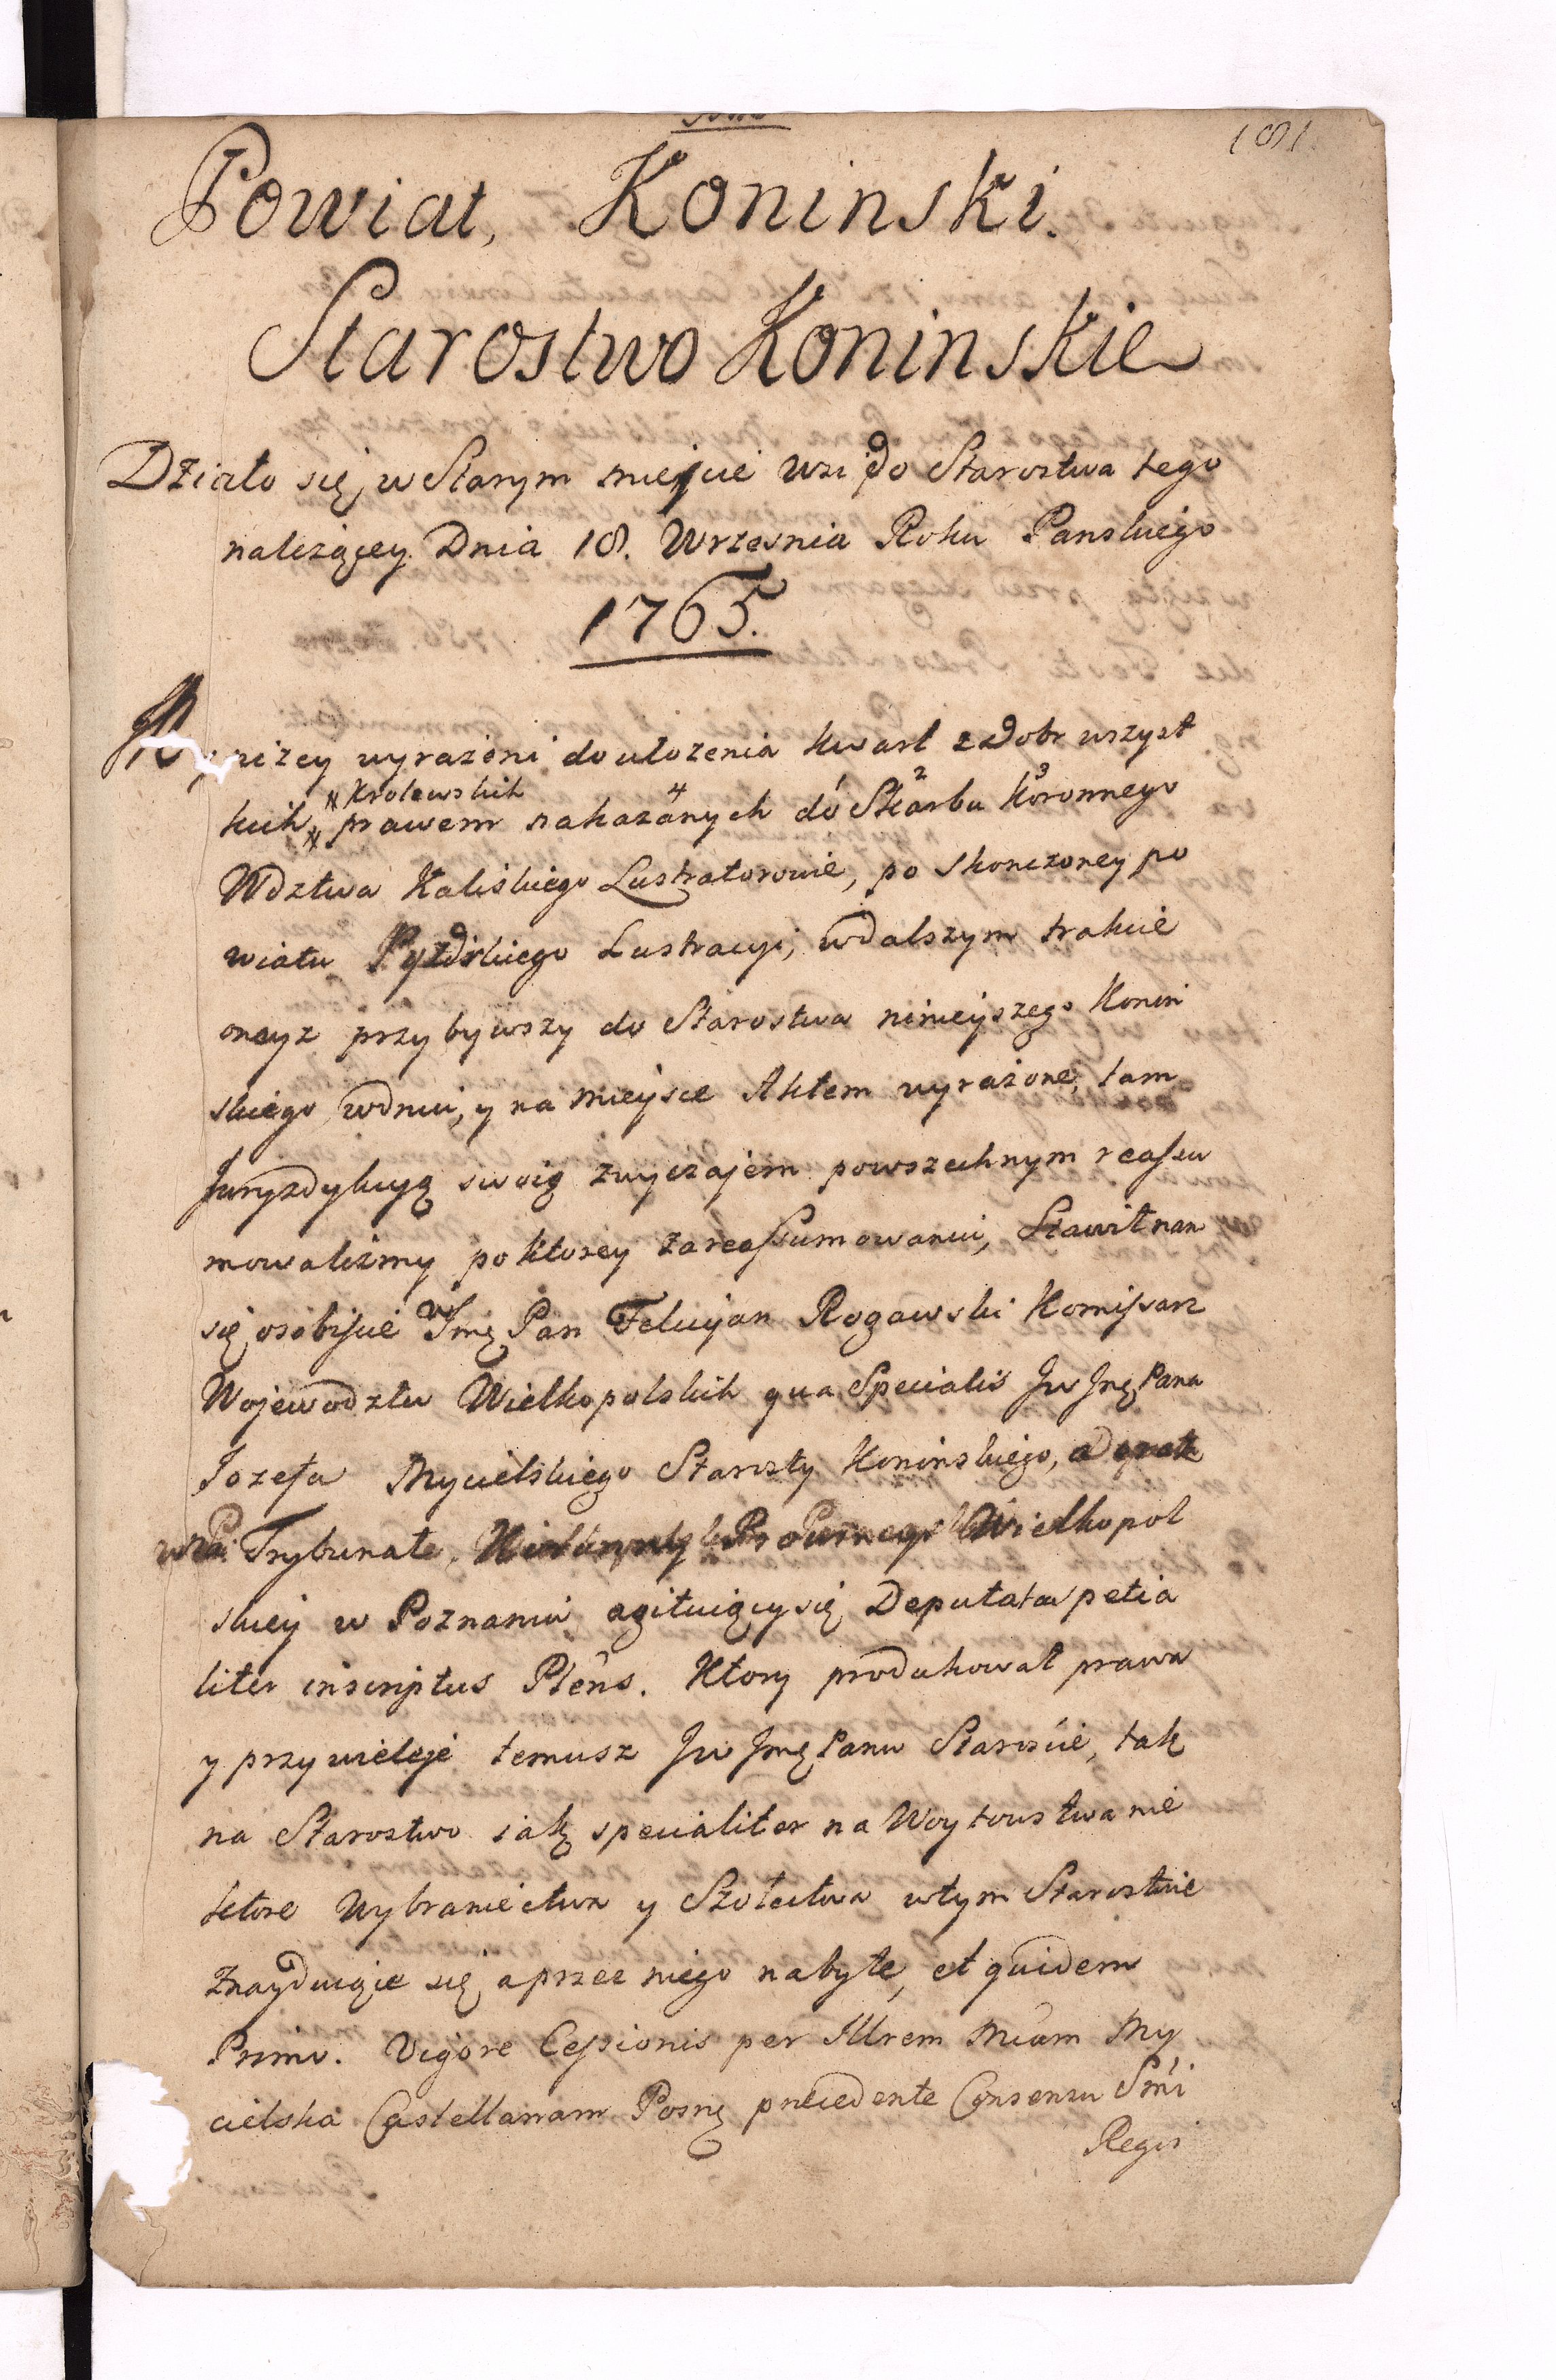 181.
Powiat, Koninski.
Starostwo Koninskie
Działo się w Starym miejscu wsi do Starostwa tego
należącey Dnia 18. Wrzesnia Roku Panskiego
1765.
My niżey wyrażoni do ułozenia kwart z dobr wszyst
kich Krolewskich prawem nakazanych do Skarbu Koronnego
Wdztwa Kaliskiego Lustratorowie, po skonczoney po
wiatu Pyzdrskiego Lustracyi, w dalszym trakcie
oneyz przybywszy do Starostwa ninieyszego Konin
skiego w dniu, y na mieysce Aktem wyrażone, tam
Juryzdykcyą swoią zwyczajem powszechnym reassu
mowalizmy po ktorey zareassumowaniu, Stawił nam
się osobiscie W Jmę Pan Felicyan Rogawski Komissarz
Wojewodztw Wielkopolskich qua Specialis Jw Jmę Pana
Jozefa Mycielskiego Starosty Koninskiego, a
Trybunale Wielkopol
skiey w Poznaniu agituiącym się Deputata petia
liter inscriptus Plens. Ktory produkował prawa
y przywileje temusz Jw Jmę Panu Staroscie, tak
na Starostwo iak specialiter na Woytowstwa nie
ktore Wybraniectwa y Szołectwa w tym Starostwie
znayduiące się a przez niego nabyte, et quidem
Primo. Vigore Cessionis per Illrem Mcam My
cielska Castellanam Posnę precedente Consensu Smi
Regis